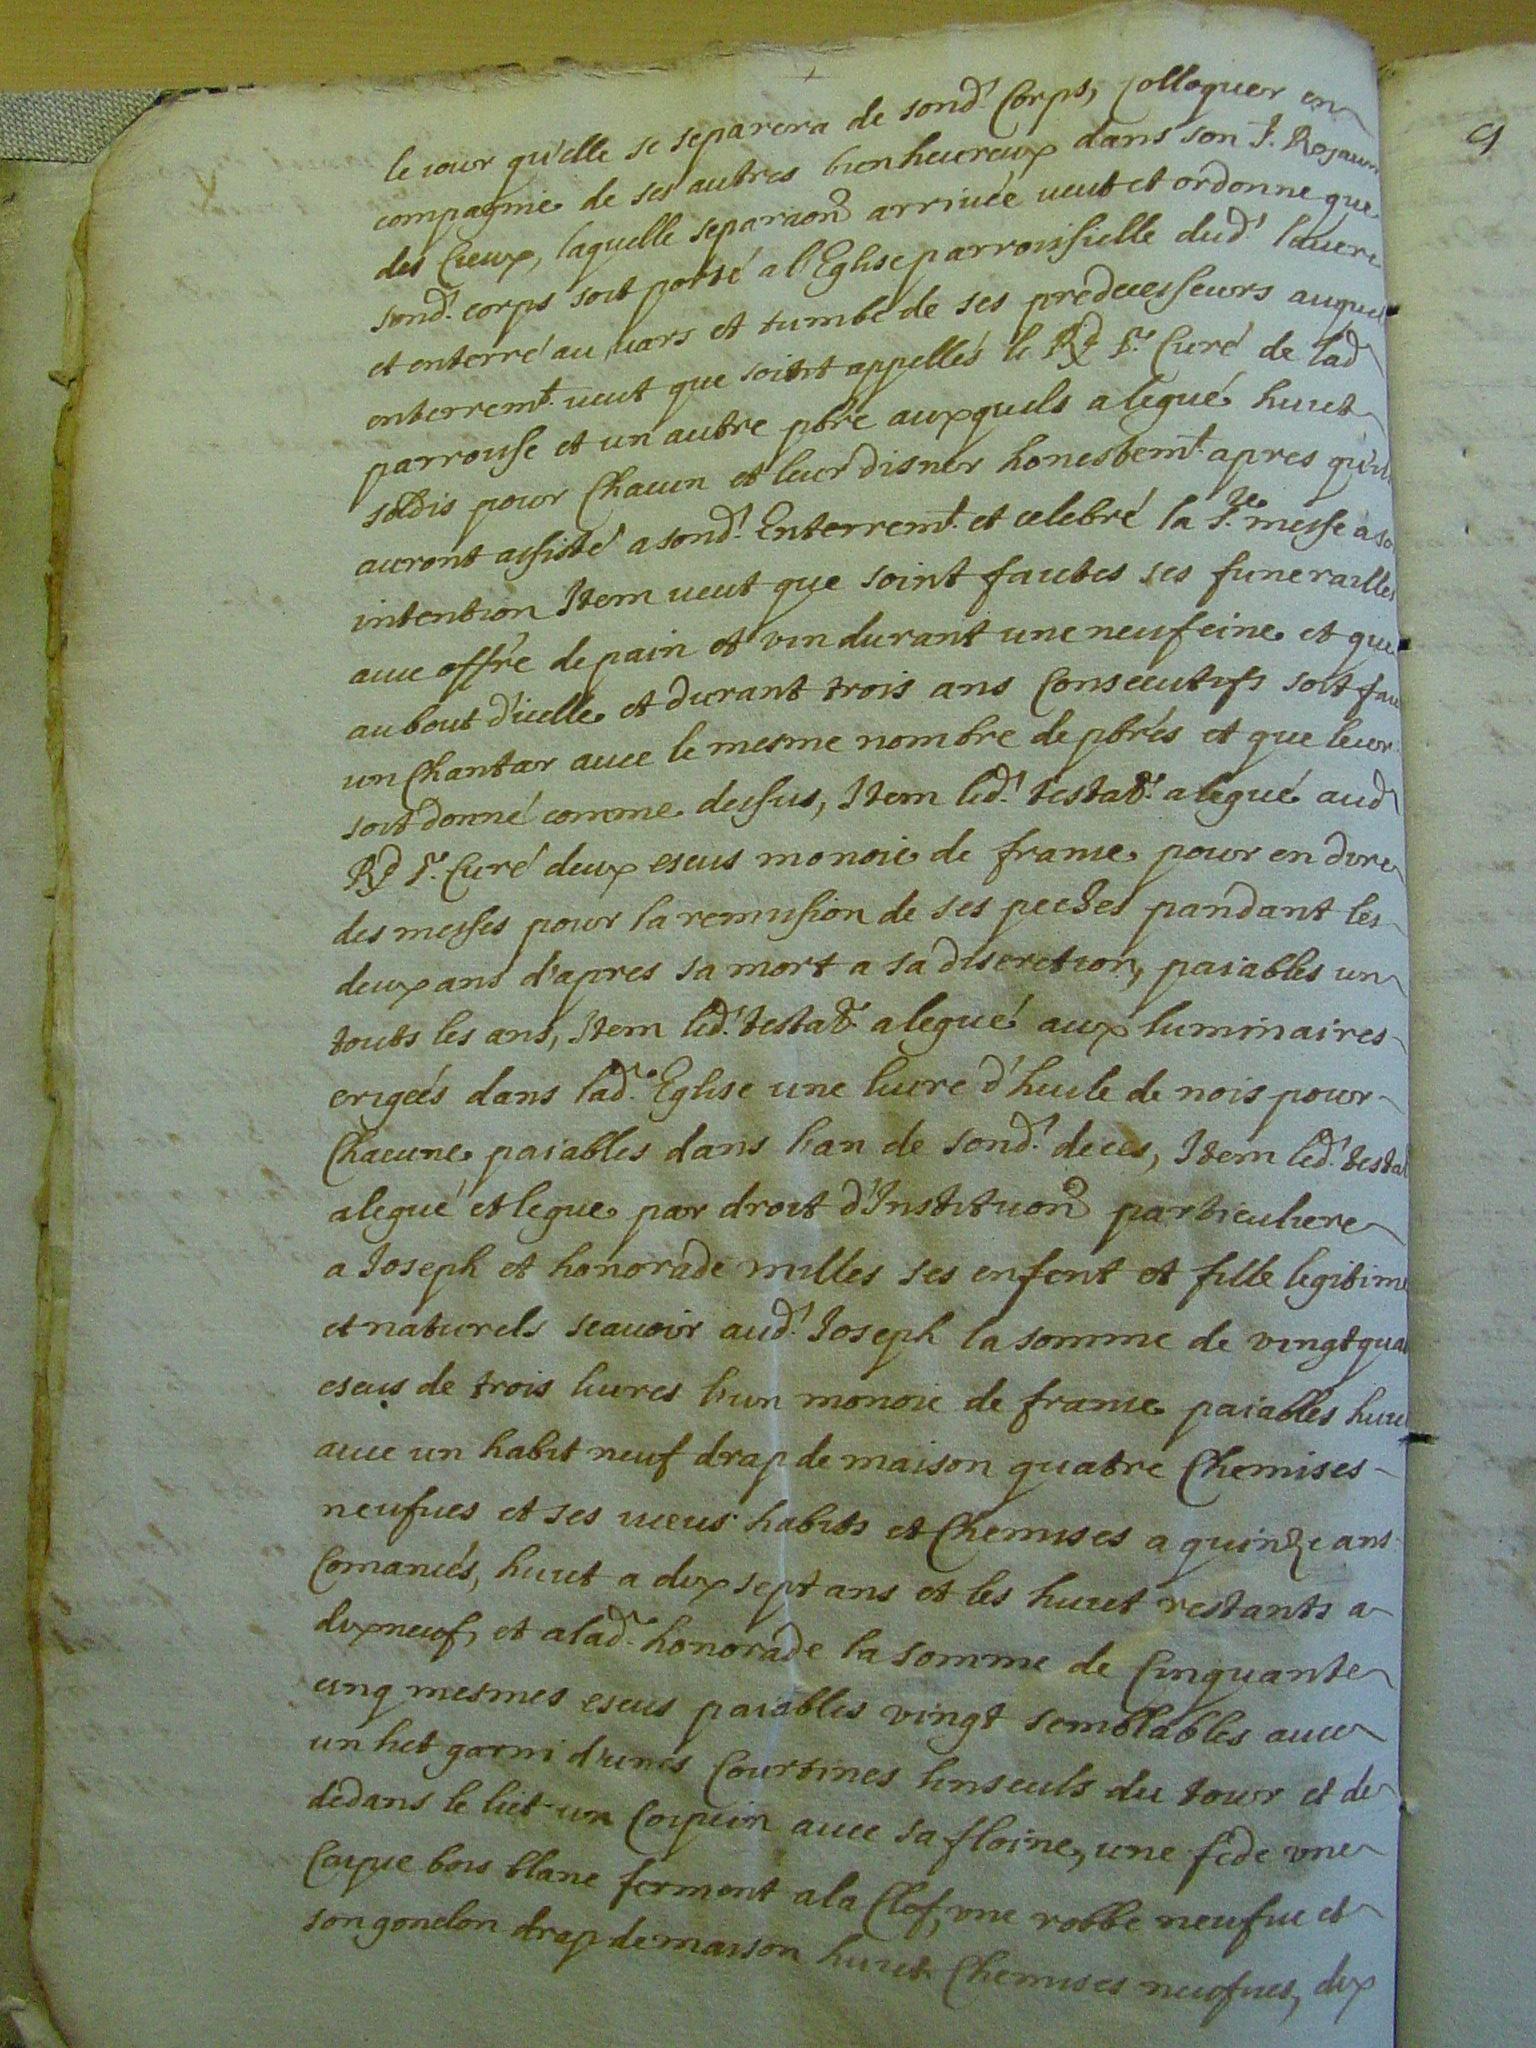 le iour qu'elle se separera de sond.t Corps, Colloquer en
compagnie de ses autres bienheureux dans son S. Royaume
des Cieux, laquelle separaon arriuée ueut et ordonne que
sond.t corps soit porté a l'Eglise parroissielle dud.t lauere
et enterré au uars et tumbe de ses predecesseurs auquel
enterrem.t ueut que soint appellés le Rd Sr. Curé de lad
parroisse et un autre pbre auxquels a legué huict
soldis pour Chacun et leur disner honestem.t apres qu'ils
auront assisté a sond.t Enterrem.t et celebré la S.te messe a so
intention Item ueut que soint faictes ses funerailles
auec offre de pain et vin durant une neufeine et que
au bout d'icelle et durant trois ans Consecutifs soit faic
un Chantar auec le mesme nombre de pbrés et que leur
soit donné comme dessus, Item led.t testatr. a legué aud
Rd Sr. Curé deux escus monoie de franse pour en dire
des messes pour la remission de ses pechés pandant les
deux ans d'apres sa mort a sa discretion, paiables un
touts les ans, Item led.t testatr. a legué aux luminaires
erigées dans lad. Eglise une liure d'huile de nois pour
Chacune paiables dans l'an de sond.t deces, Item led.t testa
a legué et legue par droit d'Instituon particuliere
a Joseph et honorade milles ses enfent et fille legitime
et naturels scauoir aud.t Joseph la somme de vingt qua
escus de trois liures l'un monoie de franse paiables huic
auec un habit neuf drap de maison quatre Chemises
neufues et ses uieus habits et Chemises a quinze ans
Comancés, huict a dix sept ans et les huict restants a
dix neuf, et a lad. honorade la somme de Cinquante
cinq mesmes escus paiables vingt semblables auec
un liet garni d'unes Courtines linseuls du tour et de
dedans le liet un Coipin auec sa floine, une fede une
Caipse bois blanc ferment a la Clef, une robbe neufue et
son gonelon drap de maison huict Chemises neufues, dix